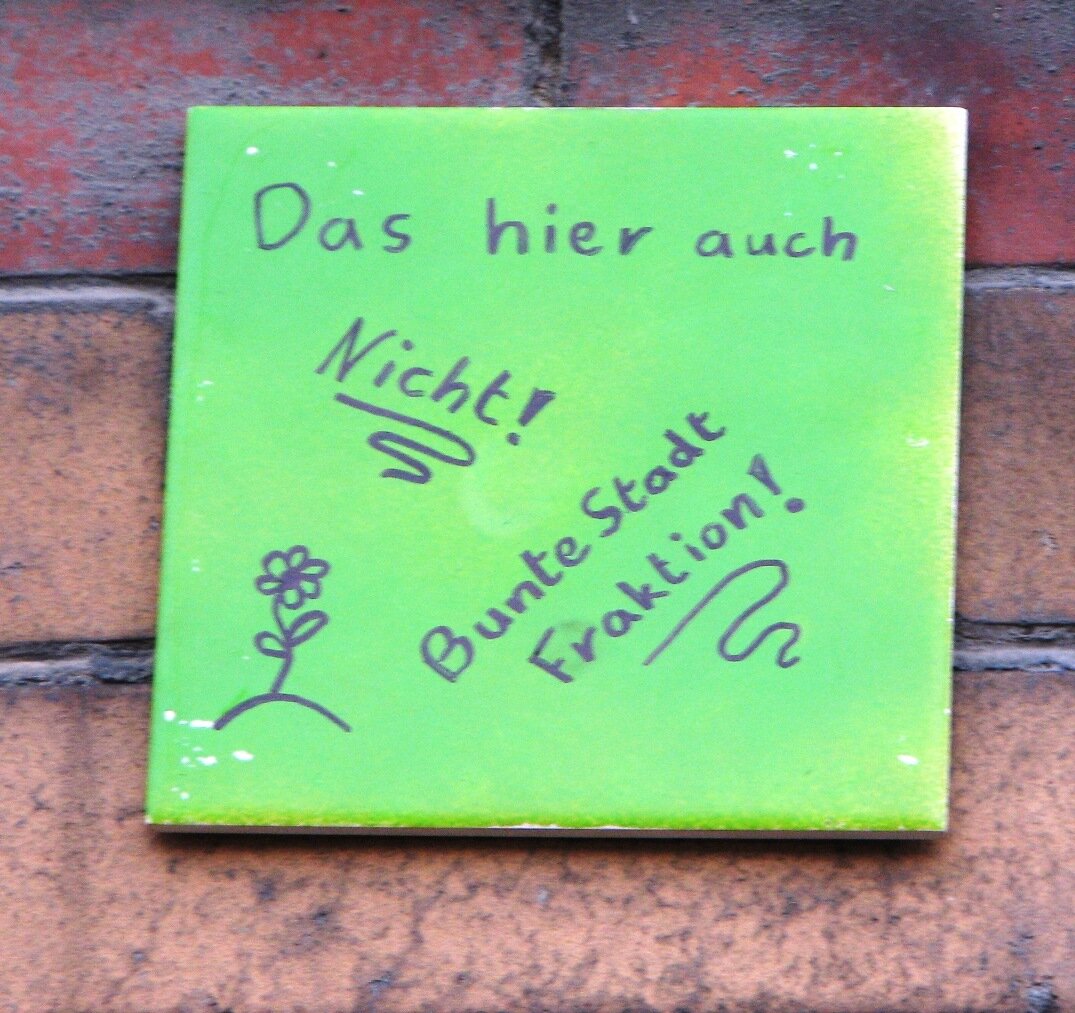 Das hier auch
Nicht!
Bunte Stadt
Fraktion!